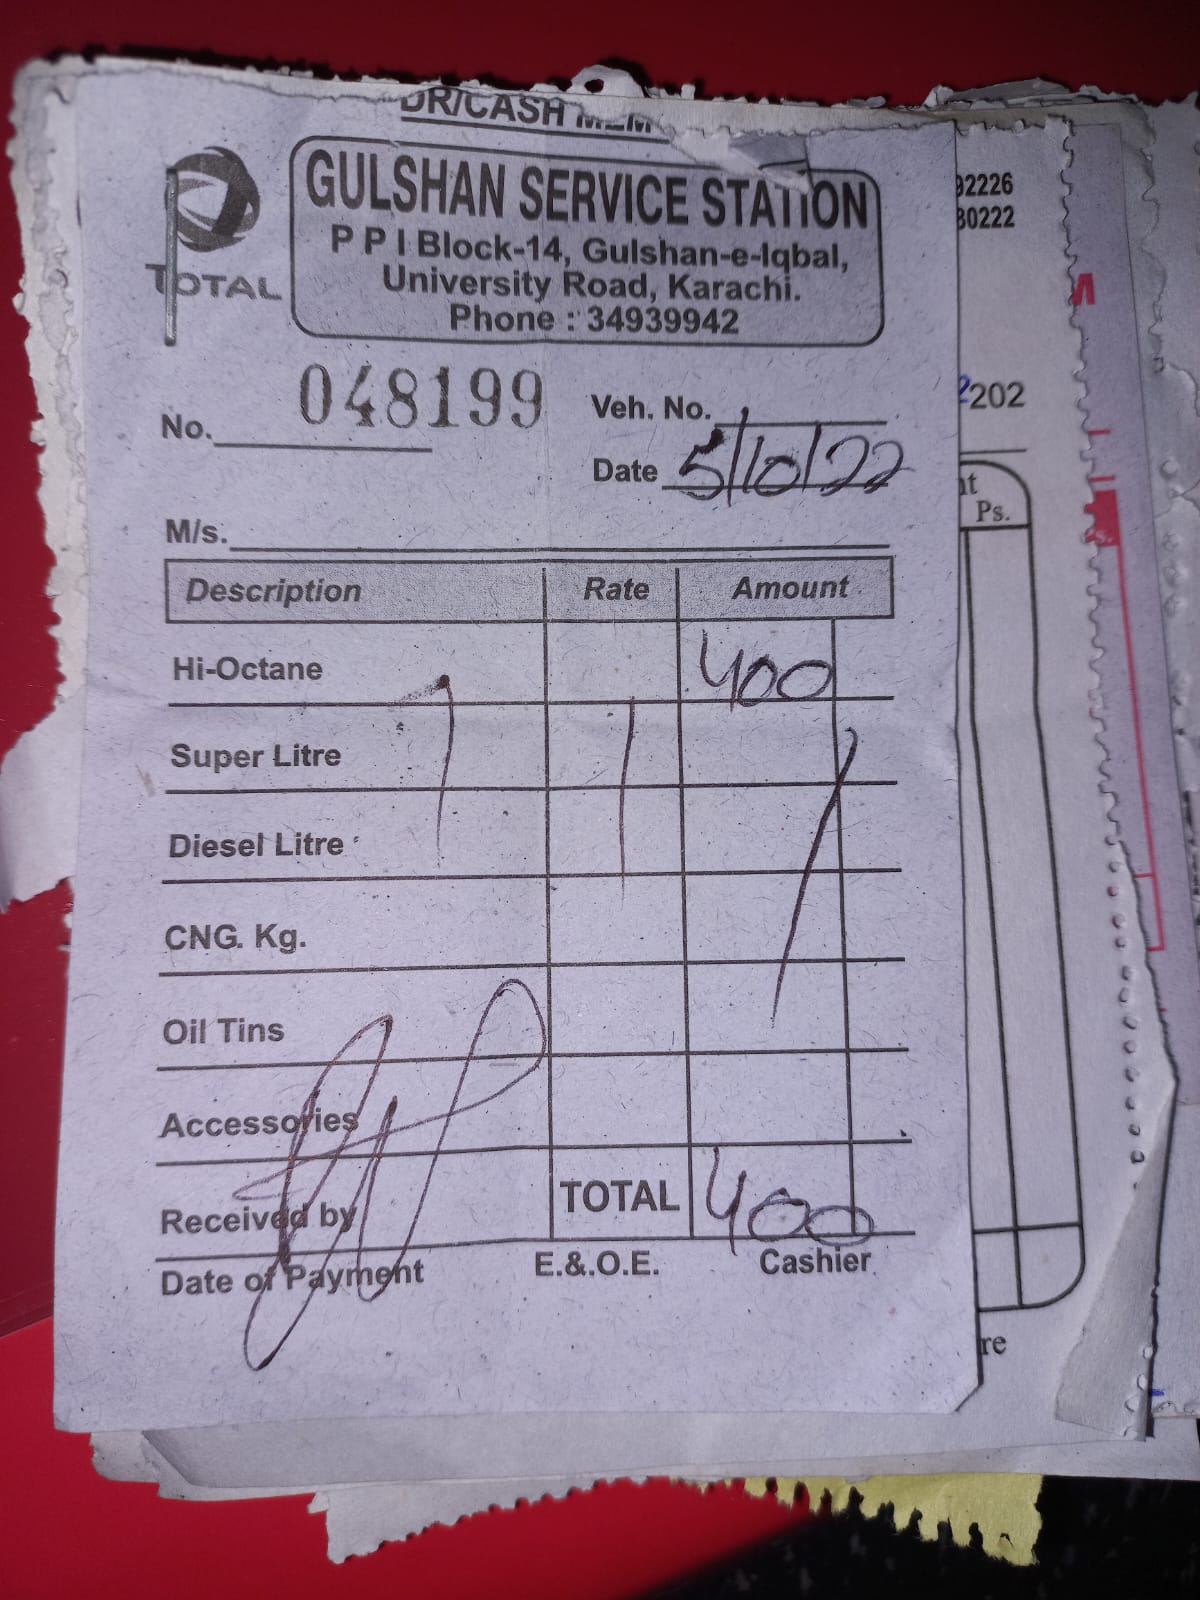 DR/CASH MEM
GULSHAN SERVICE STATION
P P I Block-14, Gulshan-e-Iqbal,
University Road, Karachi.
Phone : 34939942
TOTAL
No. 048199
Veh. No.
Date 5/10/22
M/s.
Description Rate Amount
Hi-Octane 400
Super Litre
Diesel Litre
CNG. Kg.
Oil Tins
Accessories
Received by TOTAL 400
Date of Payment E.&.O.E. Cashier
92226
80222
M
2202
nt
Ps.
s.
re